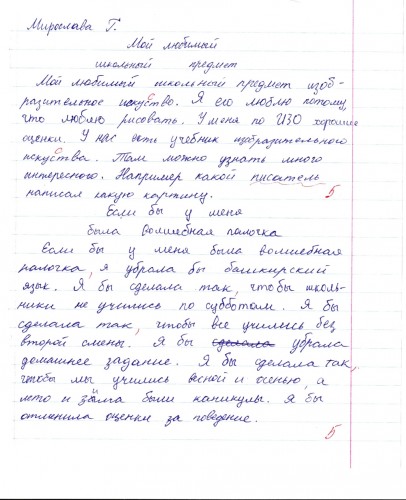 Мирослава Г.
Мой любимый
школьный предмет
Мой любимый школьный предмет изоб-
разительное искуство. Я его люблю потому,
что люблю рисовать. У меня по ИЗО хорошие
оценки. У нас есть учебник изобразительного
искуства. Там можно узнать много
интересного. Например какой писатель
написал какую картину.
5
Если бы у меня
была волшебная палочка
Если бы у меня была волшебная
палочка, я убрала бы башкирский
язык. Я бы сделала так, чтобы школь-
ники не учились по субботам. Я бы
сделала так, чтобы все учились без
второй смены. Я бы сделала убрала
домашнее задание. Я бы сделала так,
чтобы мы учились весной и осенью, а
лето и зима были каникулы. Я бы
отменила оценки за поведение.
5